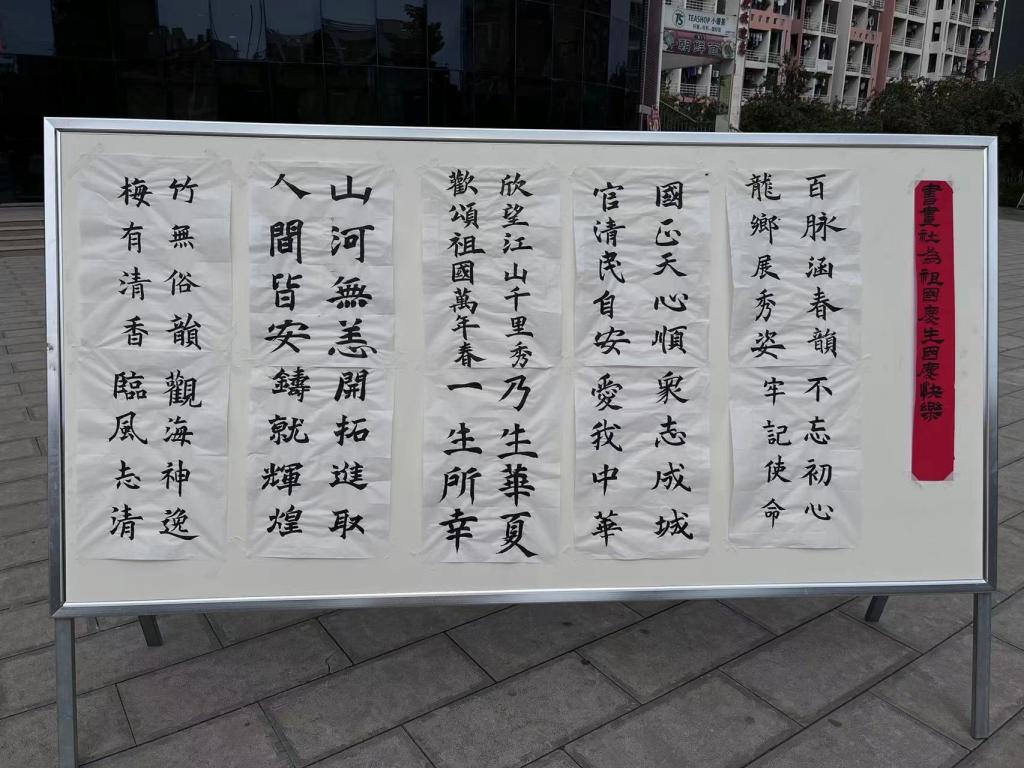 TEASHOP
書畫社為祖國慶生國慶快樂
百脉涵春韻
龍鄉展秀姿
不忘初心
牢記使命
國正天心順
官清民自安
衆志成城
愛我中華
欣望江山千里秀
歡頌祖國萬年春
乃生華夏
一生所幸
山河無恙
人間皆安
開拓進取
鑄就輝煌
竹無俗韻
梅有清香
觀海神逸
臨風志清